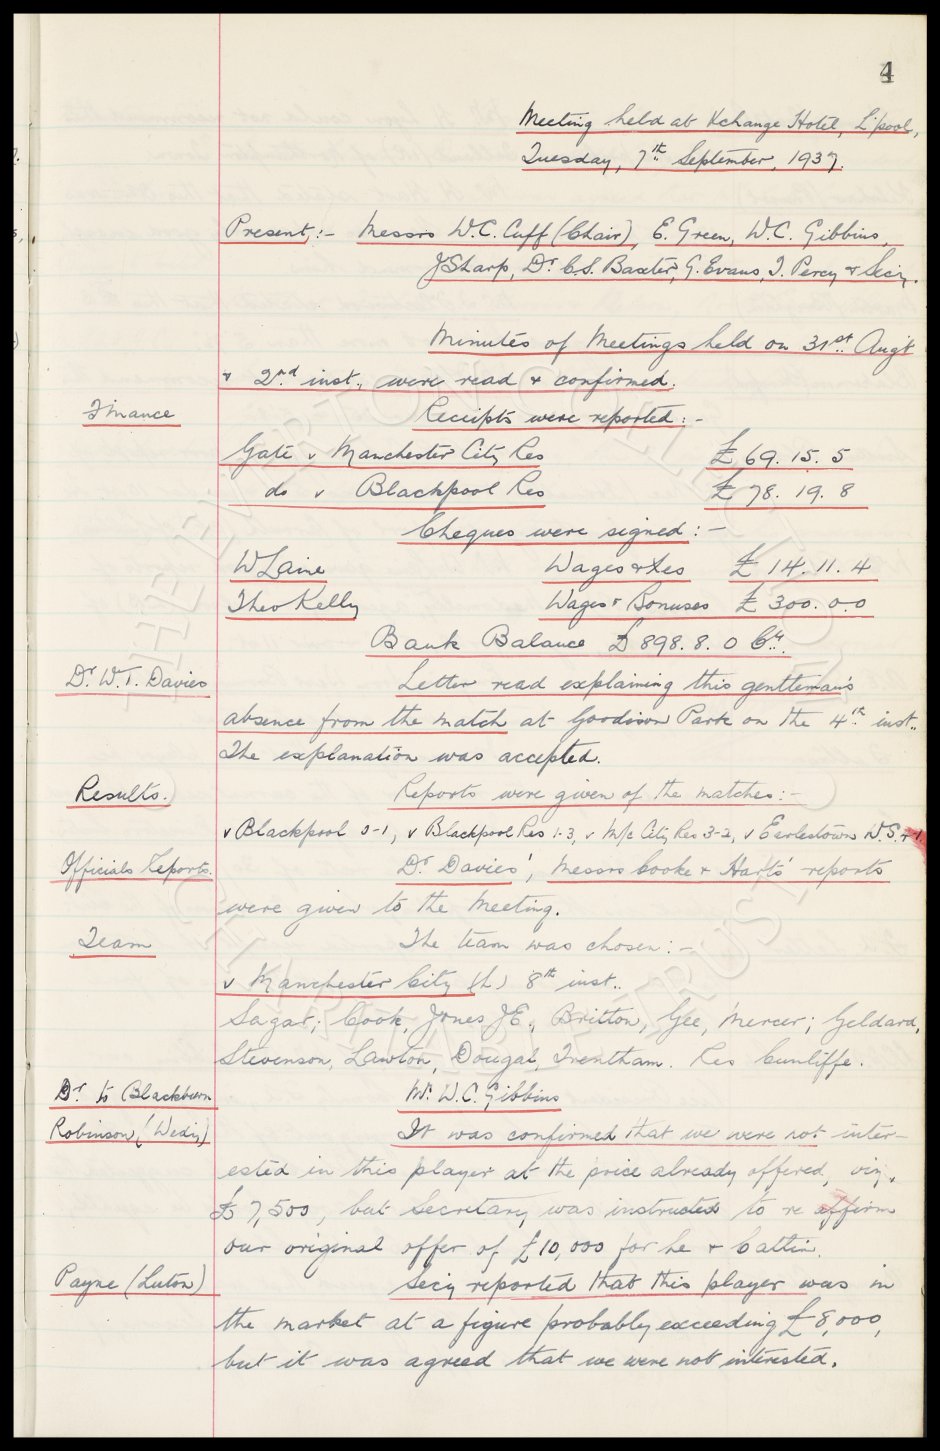 4
Meeting held at Xchange Hotel, L'pool,
Tuesday, 7th September, 1937.
Present:- Messrs W.C. Cuff (Chair), E. Green, W.C. Gibbins,
J Sharp, Dr C.S. Baxter, G. Evans, T. Percy & Secy.
Minutes of Meetings held on 31st Augt
& 2nd inst., were read & confirmed.
Finance Receipts were reported:-
Gate v Manchester City Res £69.15.5
do v Blackpool Res £78.19.8
Cheques were signed:-
W Laine Wages &Xes £14.11.4
Theo Kelly Wages & Bonuses £300.0.0
Bank Balance £898.8.0 Cr.
Dr W.T. Davies Letter read explaining this gentleman's
absence from the match at Goodison Park on the 4th inst.,
The explanation was accepted.
Results. Reports were given of the matches:-
v Blackpool 0-1, v Blackpool Res 1-3, v M/c City Res 3-2, v Earlestown W.S.
Officials Reports. Dr Davies', Messrs Cooke & Hart's' reports
were given to the Meeting.
Team The team was chosen:-
v Manchester City (h) 8th inst..
Sagar; Cook, Jones J.E., Britton, Gee, Mercer; Geldard,
Stevenson, Lawton, Dougal, Trentham. Res Cunliffe.
Dr to Blackburn Mr W.C. Gibbins
Robinson (Wedy) It was confirmed that we were not inter-
ested in this player at the price already offered, viz,
£7,500, but Secretary was instructed to re affirm
our original offer of £10,000 for he & Catlin.
Payne (Luton) Secy reported that this player was in
the market at a figure probably exceeding £8,000,
but it was agreed that we were not interested.
THE EVERTON COLLECTION
CHARITABLE TRUST